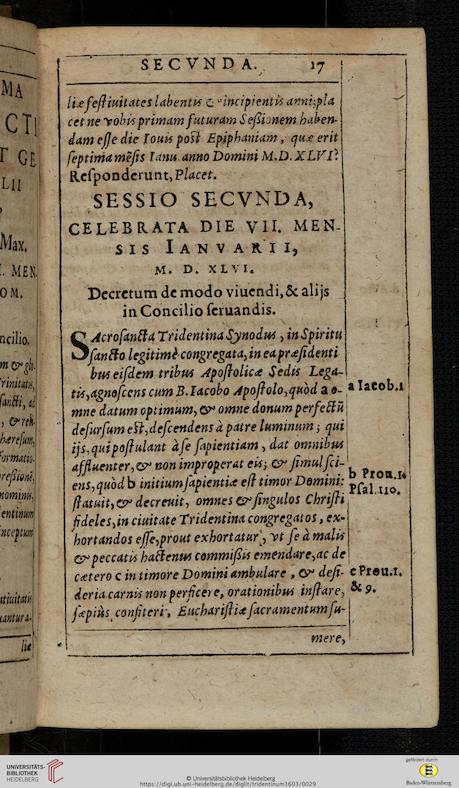 MA
CTI
T GE
LII
Max.
I. MEN
OM.
ncilio.
m & glo
Trinitatis,
sancti, ad
, & reli-
hæresum,
formatio-
pressione,
nominis,
entinum
inceptum
tiuitatis
uantur a-
liæ
SECVNDA. 17
liæ festiuitates labentis & incipientis anni: pla
cet ne vobis primam futuram Seßionem haben-
dam esse die Iouis post Epiphaniam, quæ erit
septima mẽsis Ianu. anno Domini M.D.XLVI?
Responderunt, Placet.
SESSIO SECVNDA,
CELEBRATA DIE VII. MEN-
SIS IANVARII,
M. D. XLVI.
Decretum de modo viuendi, & alijs
in Concilio seruandis.
SAcrosancta Tridentina Synodus, in Spiritu
sancto legitimè congregata, in ea præsidenti
bus eisdem tribus Apostolicæ Sedis Lega-
tis, agnoscens cum B. Iacobo Apostolo, quòd a o-
mne datum optimum, & omne donum perfectũ
desursum est, descendens à patre luminum; qui
ijs, qui postulant à se sapientiam, dat omnibus
affluenter, & non improperat eis; & simul sci-
ens, quòd b initium sapientiæ est timor Domini:
statuit, & decreuit, omnes & singulos Christi
fideles, in ciuitate Tridentina congregatos, ex-
hortandos esse, prout exhortatur, vt se à malis
& peccatis hactenus commißis emendare, ac de
cætero c in timore Domini ambulare, & desi-
deria carnis non perficere, orationibus instare,
sæpiùs confiteri, Eucharistiæ sacramentum su-
mere,
a Iacob.1
b Prou.1.
Psal.110.
c Prou.1.
& 9.
UNIVERSITÄTS-
BIBLIOTHEK
HEIDELBERG
© Universitätsbibliothek Heidelberg
https://digi.ub.uni-heidelberg.de/diglit/tridentinum1603/0029
gefördert durch
Baden-Württemberg